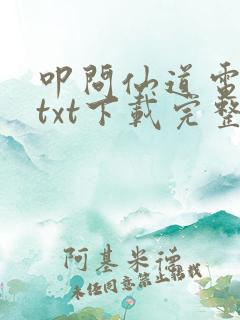 叩问仙道电
txt下载完整
阿基米德
未经同意禁止转载